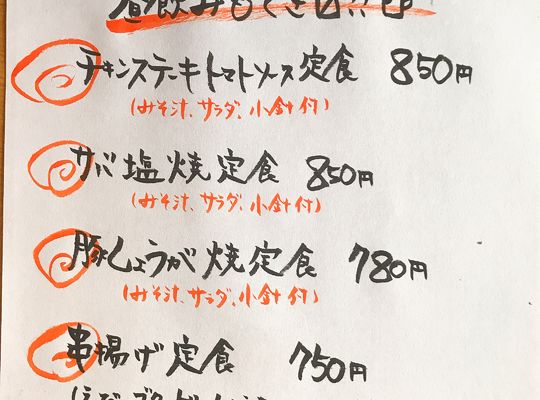 昼飲みもできます!!
チキンステーキトマトソース定食 850円
(みそ汁、サラダ、小針付)
サバ塩焼定食 850円
(みそ汁、サラダ、小針付)
豚しょうが焼定食 780円
(みそ汁、サラダ、小針付)
串揚げ定食 750円